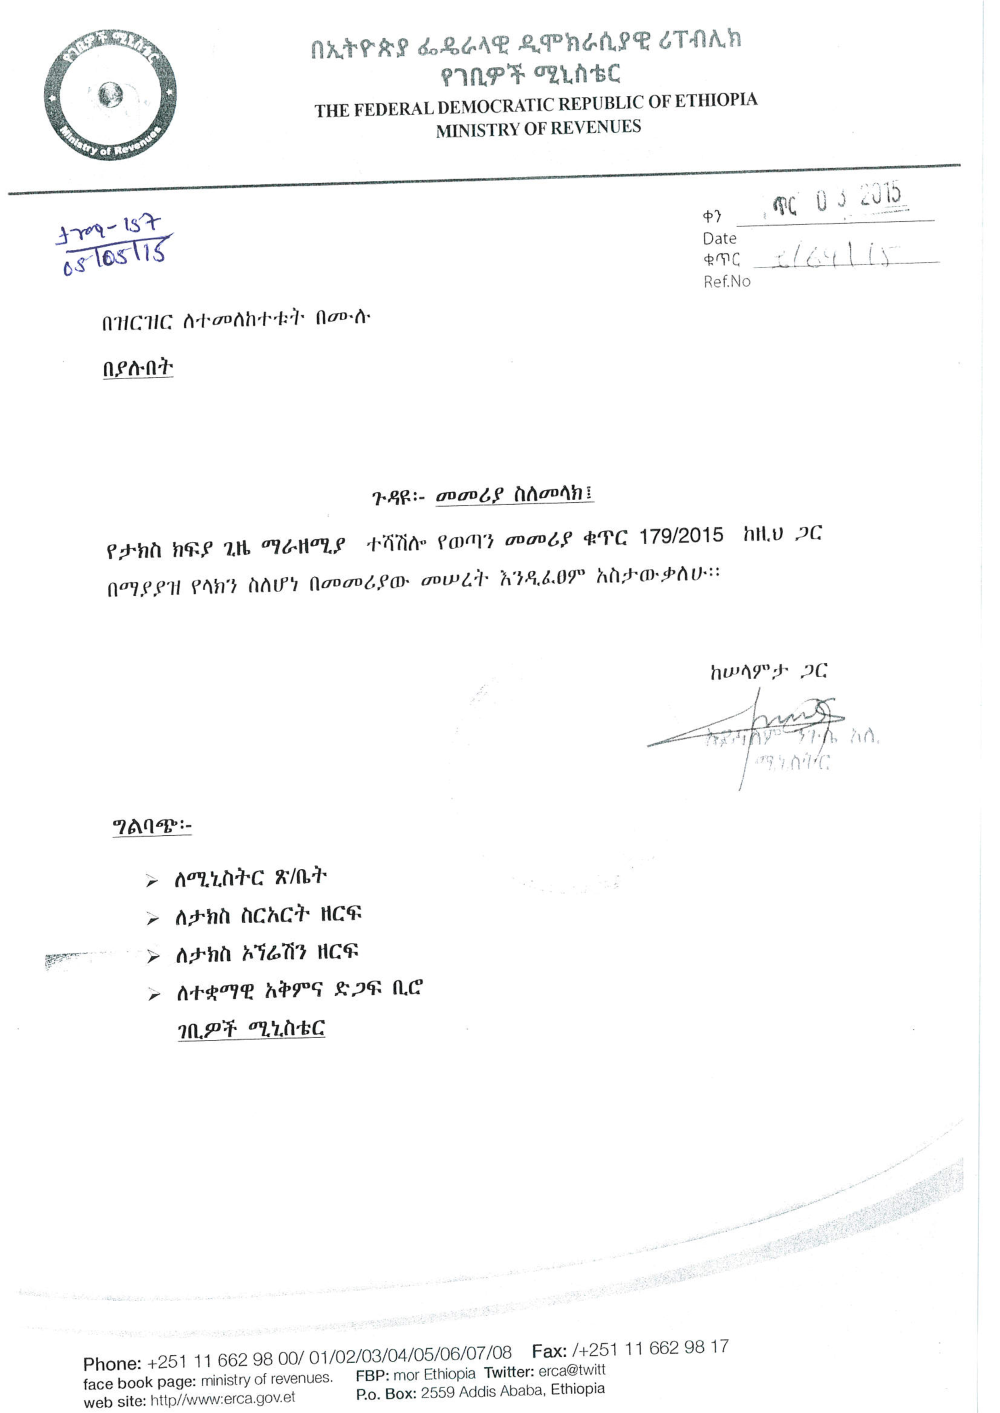 የገቢዎች ሚኒስቴር
Ministry of Revenues
በኢትዮጵያ ፌዴራላዊ ዲሞክራሲያዊ ሪፐብሊክ
የገቢዎች ሚኒስቴር
THE FEDERAL DEMOCRATIC REPUBLIC OF ETHIOPIA
MINISTRY OF REVENUES
157
05/05/15
ቀን ጥር 03 2015
Date
ቁጥር /15
Ref.No
በዝርዝር ለተመለከተቱት በሙሉ
በያሉበት
ጉዳዩ፡- መመሪያ ስለመላክ፤
የታክስ ክፍያ ጊዜ ማራዘሚያ ተሻሽሎ የወጣን መመሪያ ቁጥር 179/2015 ከዚህ ጋር
በማያያዝ የላክን ስለሆነ በመመሪያው መሠረት እንዲፈፀም አስታውቃለሁ፡፡
ከሠላምታ ጋር
ሚኒስትር
ግልባጭ፡-
➢ ለሚኒስትር ጽ/ቤት
➢ ለታክስ ስርአርት ዘርፍ
➢ ለታክስ ኦኘሬሽን ዘርፍ
➢ ለተቋማዊ አቅምና ድጋፍ ቢሮ
ገቢዎች ሚኒስቴር
Phone: +251 11 662 98 00/ 01/02/03/04/05/06/07/08 Fax: /+251 11 662 98 17
face book page: ministry of revenues. FBP: mor Ethiopia Twitter: erca@twitt
web site: http//www:erca.gov.et P.o. Box: 2559 Addis Ababa, Ethiopia